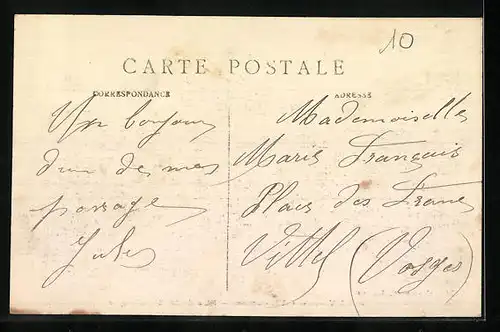 10
CARTE POSTALE
CORRESPONDANCE
Un bonjour
d'un de mes
passage
Jules
ADRESSE
Mademoiselle
Marie Français
Place des Francs
Vittel (Vosges)